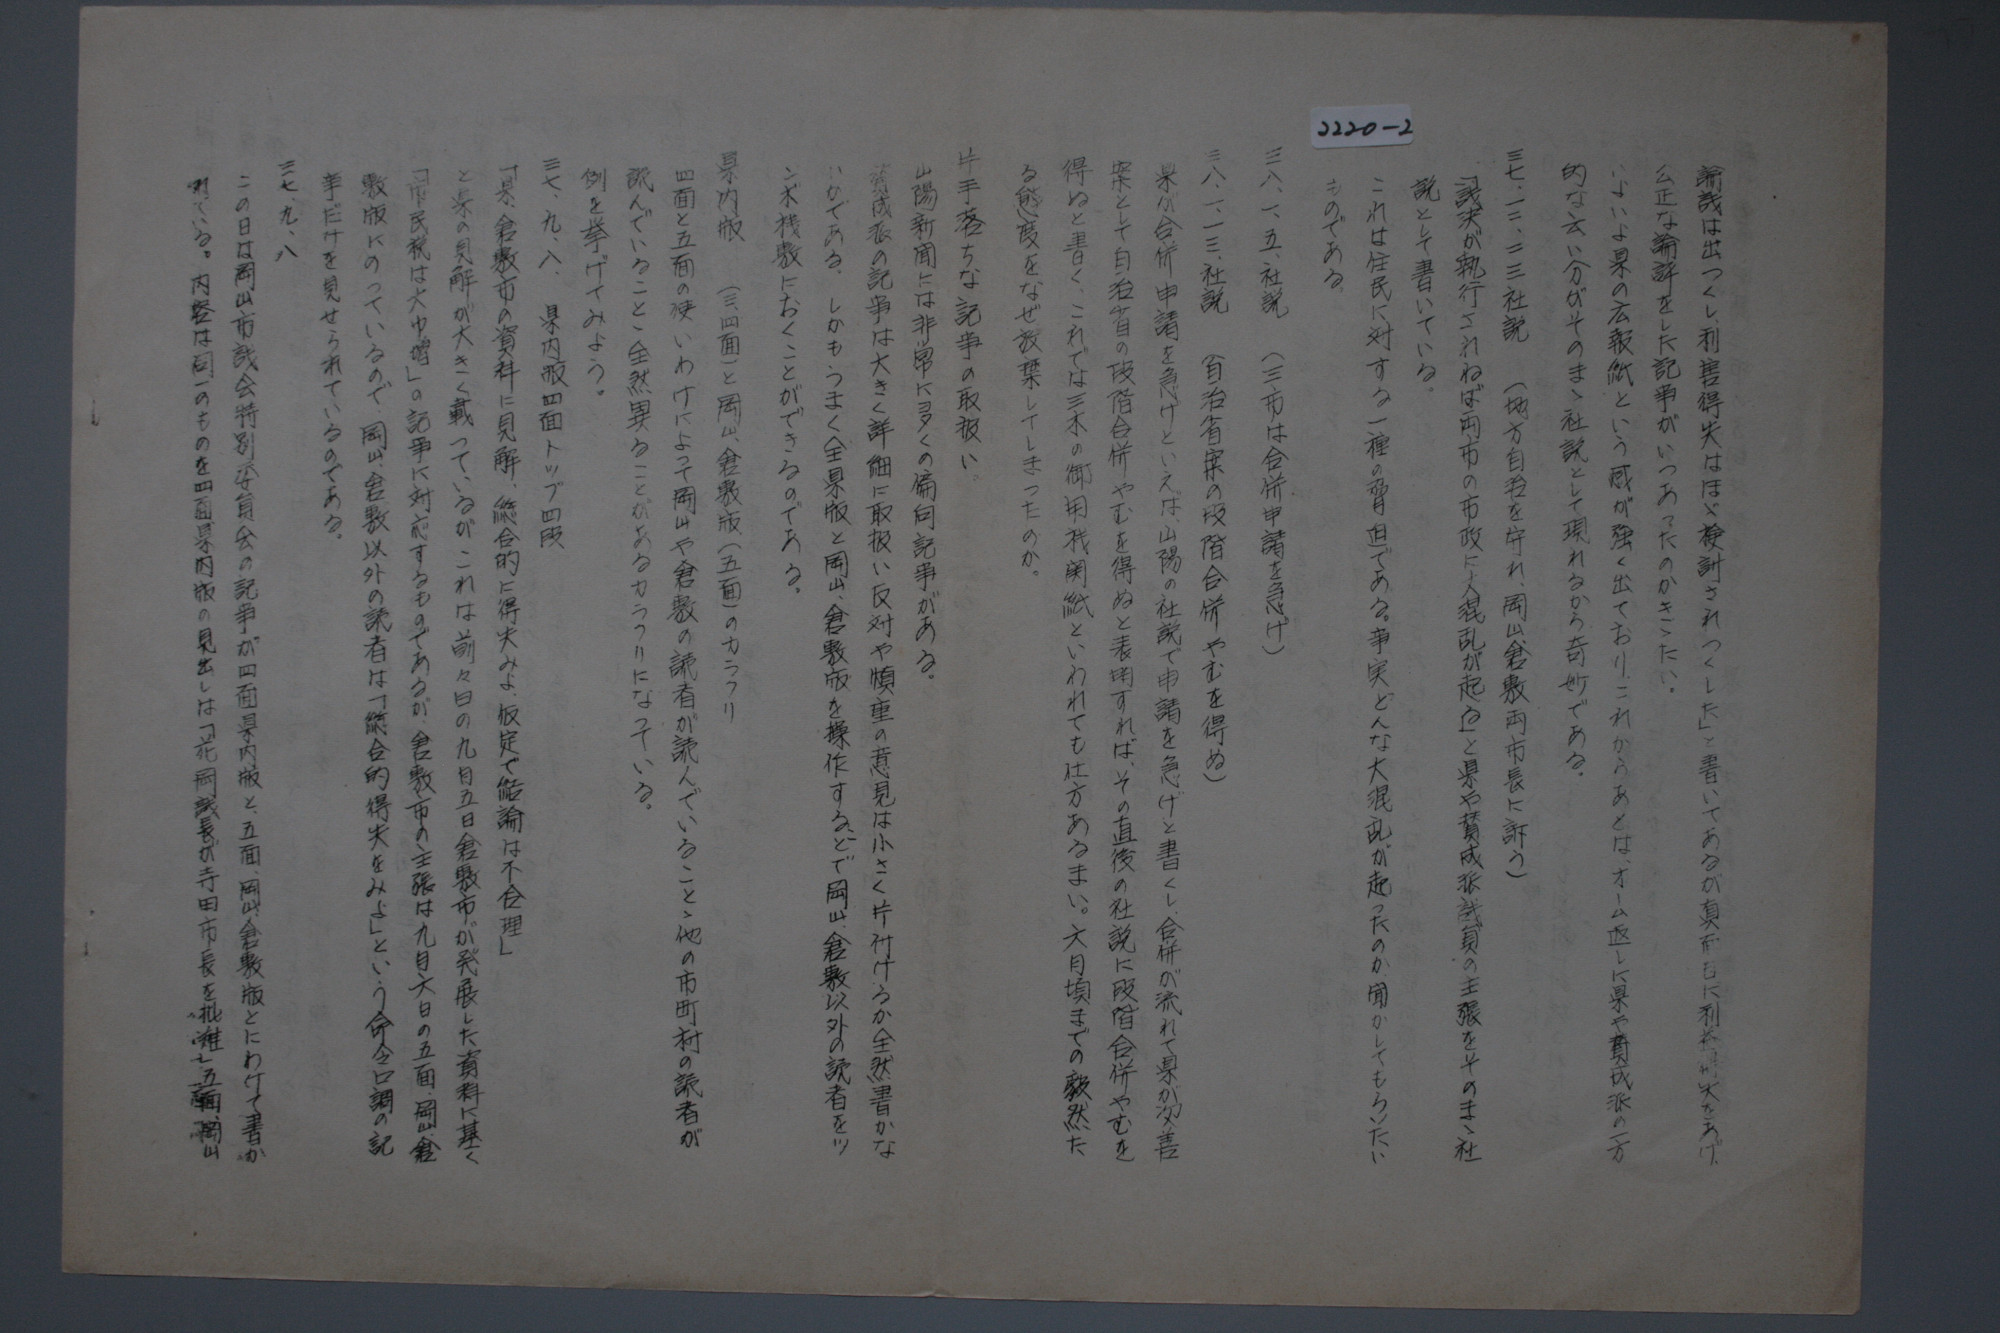 2220-2
論議は出つくし、利害得失はほゞ検討されつくした」と書いてあるが真面目に利害得失をあげ、
公正な論評をした記事がいつあったのかきゝたい。
いよいよ県の広報紙という感が強く出ており、これからあとは、オーム返しに県や賛成派の一方
的な云い分がそのまゝ社説として現れるから奇妙である。
三七、一二、二三社説　（地方自治を守れ、岡山倉敷両市長に訴う）
「議決が執行されねば両市の市政に大混乱が起る」と県や賛成派議員の主張をそのまゝ社
説として書いている。
これは住民に対する一種の脅迫である。事実どんな大混乱が起ったのか聞かしてもらいたい
ものである。
三八、一、五、社説　（三市は合併申請を急げ）
三八、一、一三、社説　（自治省案の段階合併やむを得ぬ）
県が合併申請を急げといえば、山陽の社説で申請を急げと書くし、合併が流れて県が次善
案として自治省の段階合併やむを得ぬと表明すれば、その直後の社説に段階合併やむを
得ぬと書く、これでは三木の御用機関紙といわれても仕方あるまい。六月頃までの毅然た
る態度をなぜ放棄してしまったのか。
片手落ちな記事の取扱い
山陽新聞には非常に多くの偏向記事がある。
賛成派の記事は大きく詳細に取扱い反対や慎重の意見は小さく片付けるか全然書かな
いかである。しかもうまく全県版と岡山、倉敷版を操作するなどで岡山、倉敷以外の読者をツ
ンボ桟敷におくことができるのである。
県内版　（三、四面）と岡山、倉敷版（五面）のカラクリ
四面と五面の使いわけによって岡山や倉敷の読者が読んでいることゝ他の市町村の読者が
読んでいることゝ全然異ることがあるカラクリになっている。
例を挙げてみよう。
三七、九、八、　県内版四面トップ四段
「県、倉敷市の資料に見解、総合的に得失みよ、仮定で結論は不合理」
と県の見解が大きく載っているがこれは前々日の九月五日倉敷市が発展した資料に基く
「市民税は大巾増」の記事に対応するものであるが、倉敷市の主張は九月六日の五面、岡山倉
敷版にのっているので、岡山、倉敷以外の読者は「総合的得失をみよ」という命令口調の記
事だけを見せられているのである。
三七、九、八
この日は岡山市議会特別委員会の記事が四面県内版と、五面、岡山、倉敷版とにわけて書か
れている。内容は同一のものを四面県内版の見出しは「花岡議長が寺田市長を批難」五面、岡山